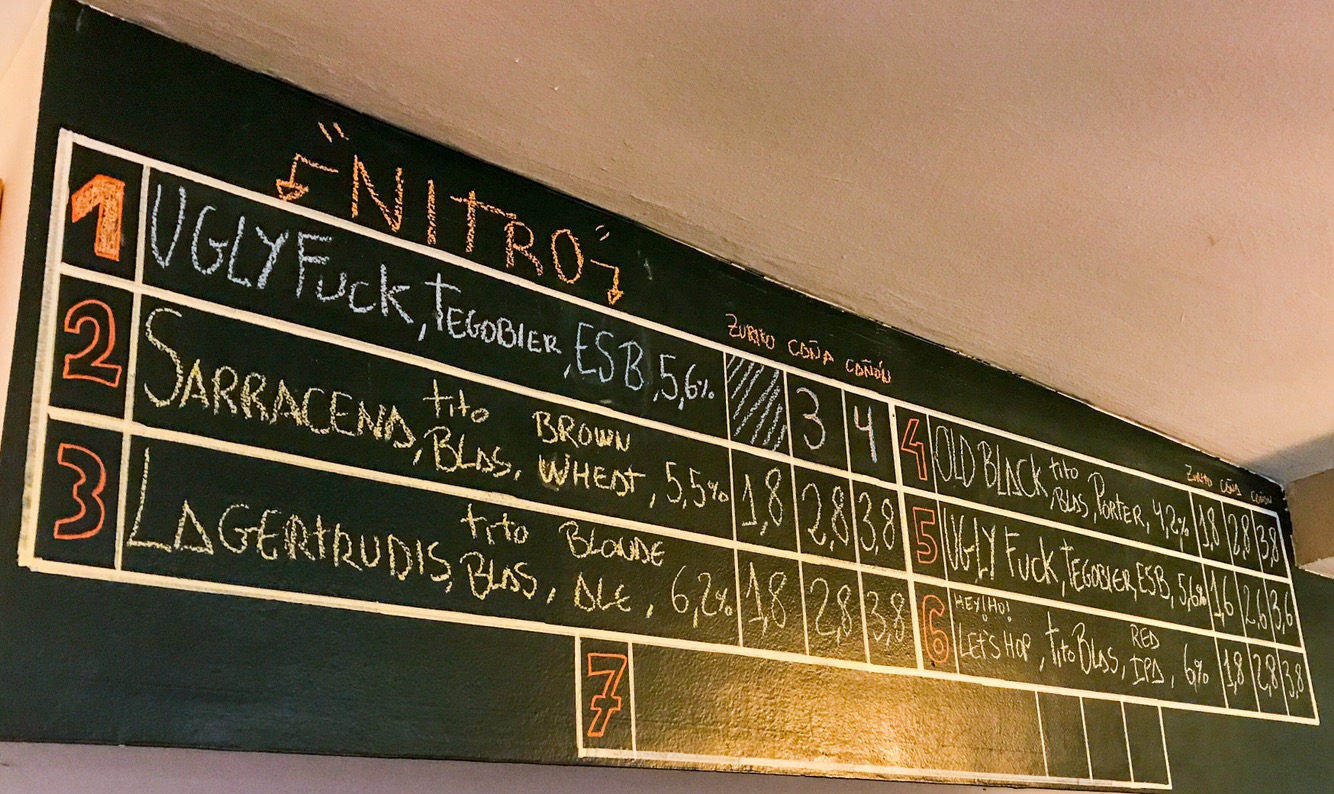 NITRO
ZURITO CAÑA CAÑÓN
1 UGLY FUCK, TEGOBIER, ESB, 5,6% 3 4
2 SARRACENA, tito BLAS, BROWN WHEAT, 5,5% 1,8 2,8 3,8
3 LAGERTRUDIS, tito BLAS, BLONDE ALE, 6,2% 1,8 2,8 3,8
ZURITO CAÑA CAÑÓN
4 OLD BLACK, tito BLAS, PORTER, 4,2% 1,8 2,8 3,8
5 UGLY FUCK, TEGOBIER, ESB, 5,6% 1,6 2,6 3,6
6 HEY! HO! LET'S HOP, tito BLAS, RED IPA, 6% 1,8 2,8 3,8
7